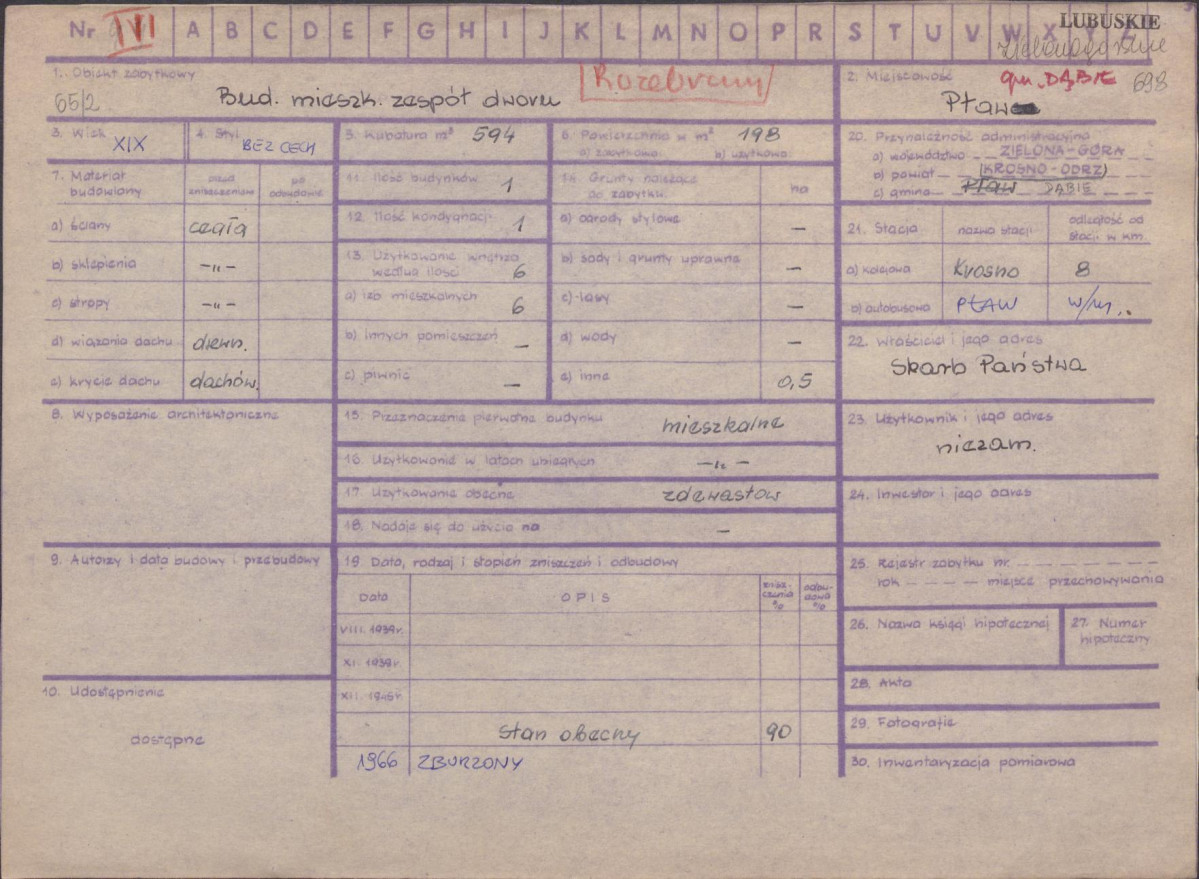 Nr IVI A B C D E F G H I J K L M N O P R S T U V W X Y Z
LUBUSKIE
Zielonogórskie
1. Obiekt zabytkowy
65/2
Bud. mieszk. zespół dworu
Rozebrany
2. Miejscowość
gm. DĄBIE 698
Pław
3. Wiek
XIX
4. Styl
BEZ CECH
5. Kubatura m³ 594
6. Powierzchnia w m² 198
a) zabytkowa: b) użytkowa:
7. Materiał budowlany
przed zniszczeniem
po odbudowie
a) ściany cegła
b) sklepienia –„–
c) stropy –„–
d) wiązania dachu drewn.
e) krycie dachu dachów.
8. Wyposażenie architektoniczne
9. Autorzy i data budowy i przebudowy
10. Udostępnienie
dostępne
11. Ilość budynków 1
12. Ilość kondygnacji 1
13. Użytkowanie wnętrza według ilości 6
a) izb mieszkalnych 6
b) innych pomieszczeń –
c) piwnic –
14. Grunty należące do zabytku
ha
a) ogrody stylowe –
b) sady i grunty uprawne –
c) lasy –
d) wody –
e) inne 0,5
15. Przeznaczenie pierwotne budynku mieszkalne
16. Użytkowanie w latach ubiegłych –„–
17. Użytkowanie obecne zdewastow
18. Nadaje się do użycia na –
19. Data, rodzaj i stopień zniszczeń i odbudowy
Data
OPIS
zniszczenia %
odbudowa %
VIII. 1939r.
XI. 1939r.
XII. 1945r.
Stan obecny 90
1966 ZBURZONY
20. Przynależność administracyjna
a) województwo ZIELONA-GÓRA
b) powiat (KROSNO-ODRZ)
c) gmina Pław DĄBIE
21. Stacja
nazwa stacji
odległość od stacji w km
a) kolejowa Krosno 8
b) autobusowa PŁAW w/m..
22. Właściciel i jego adres
Skarb Państwa
23. Użytkownik i jego adres
niezam.
24. Inwestor i jego adres
25. Rejestr zabytku nr.
rok – – – – miejsce przechowywania
26. Nazwa księgi hipotecznej
27. Numer hipoteczny
28. Akta
29. Fotografie
30. Inwentaryzacja pomiarowa